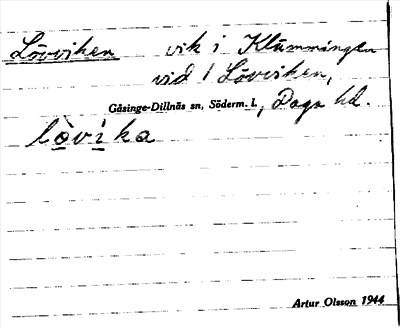 Lövviken vik i Klämmingen
vid 1 Lövviken,
Gåsinge-Dillnäs sn, Söderm. l., Daga hd.
lòvika
Artur Olsson 1944